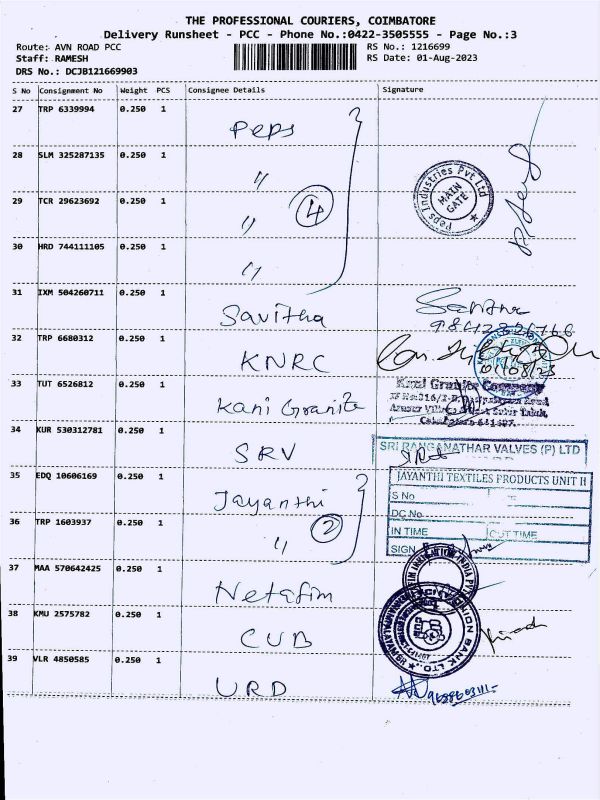 THE PROFESSIONAL COURIERS, COIMBATORE
Delivery Runsheet - PCC - Phone No.:0422-3505555 - Page No.:3
Route: AVN ROAD PCC RS No.: 1216699
Staff: RAMESH RS Date: 01-Aug-2023
DRS No.: DCJB121669903
S No Consignment No Weight PCS Consignee Details Signature
27 TRP 6339994 0.250 1 Peps
28 SLM 325287135 0.250 1 "
Peps Industries Pvt Ltd
MAIN GATE
29 TCR 29623692 0.250 1 " 4
30 HRD 744111105 0.250 1 "
31 IXM 504260711 0.250 1 Savitha Savitha
32 TRP 6680312 0.250 1 KNRC
01/08/23
33 TUT 6526812 0.250 1 Kani Granite Kani Granite Company
34 KUR 530312781 0.250 1 SRV
SRI RANGANATHAR VALVES (P) LTD
35 EDQ 10606169 0.250 1 Jayanthi JAYANTHI TEXTILES PRODUCTS UNIT II
S No
DC No
36 TRP 1603937 0.250 1 " 2
IN TIME OUT TIME
SIGN
37 MAA 570642425 0.250 1 Netafim
38 KMU 2575782 0.250 1 CUB
UNION BANK LTD
39 VLR 4850585 0.250 1 URD